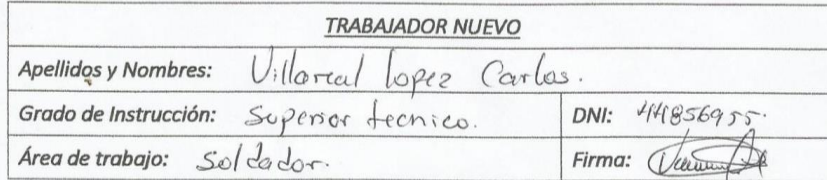 TRABAJADOR NUEVO
Apellidos y Nombres: Villareal Lopez Carlos.
Grado de Instrucción: Superior tecnico. DNI: 44856955.
Área de trabajo: Soldador. Firma: